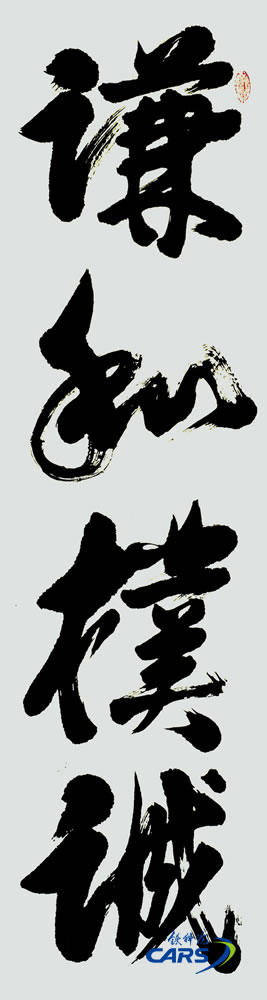 謙和樸誠
铁科院
CARS